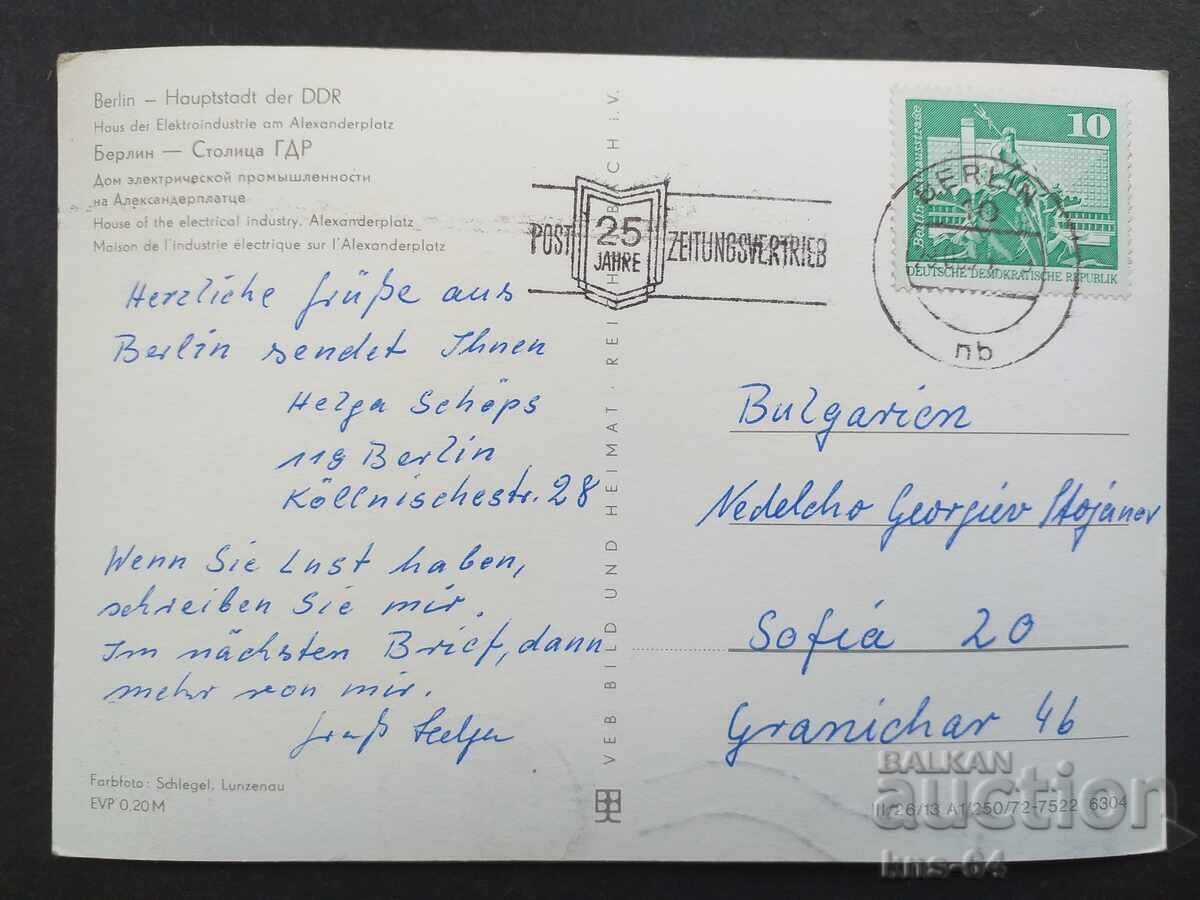 Berlin – Hauptstadt der DDR
Haus der Elektroindustrie am Alexanderplatz
Берлин — Столица ГДР
Дом электрической промышленности
на Александерплатце
House of the electrical industry. Alexanderplatz
Maison de l'Industrie électrique sur l'Alexanderplatz
Herzliche Grüße aus
Berlin sendet Ihnen
Helga Schöps
119 Berlin
Köllnischestr. 28
Wenn Sie Lust haben,
schreiben Sie mir.
Im nächsten Brief, dann
mehr von mir.
Gruß Helga
Farbfoto: Schlegel, Lunzenau
EVP 0,20 M
VEB BILD UND HEIMAT · REICHENBACH i. V.
POST 25 JAHRE ZEITUNGSVERTRIEB
10
Berlin
DEUTSCHE DEMOKRATISCHE REPUBLIK
BERLIN
10
nb
Bulgarien
Nedelcho Georgiev Stojánov
Sofiá 20
Granichar 4b
III/26/13 A1/250/72-7522 6304
BALKAN
auction
kns-64